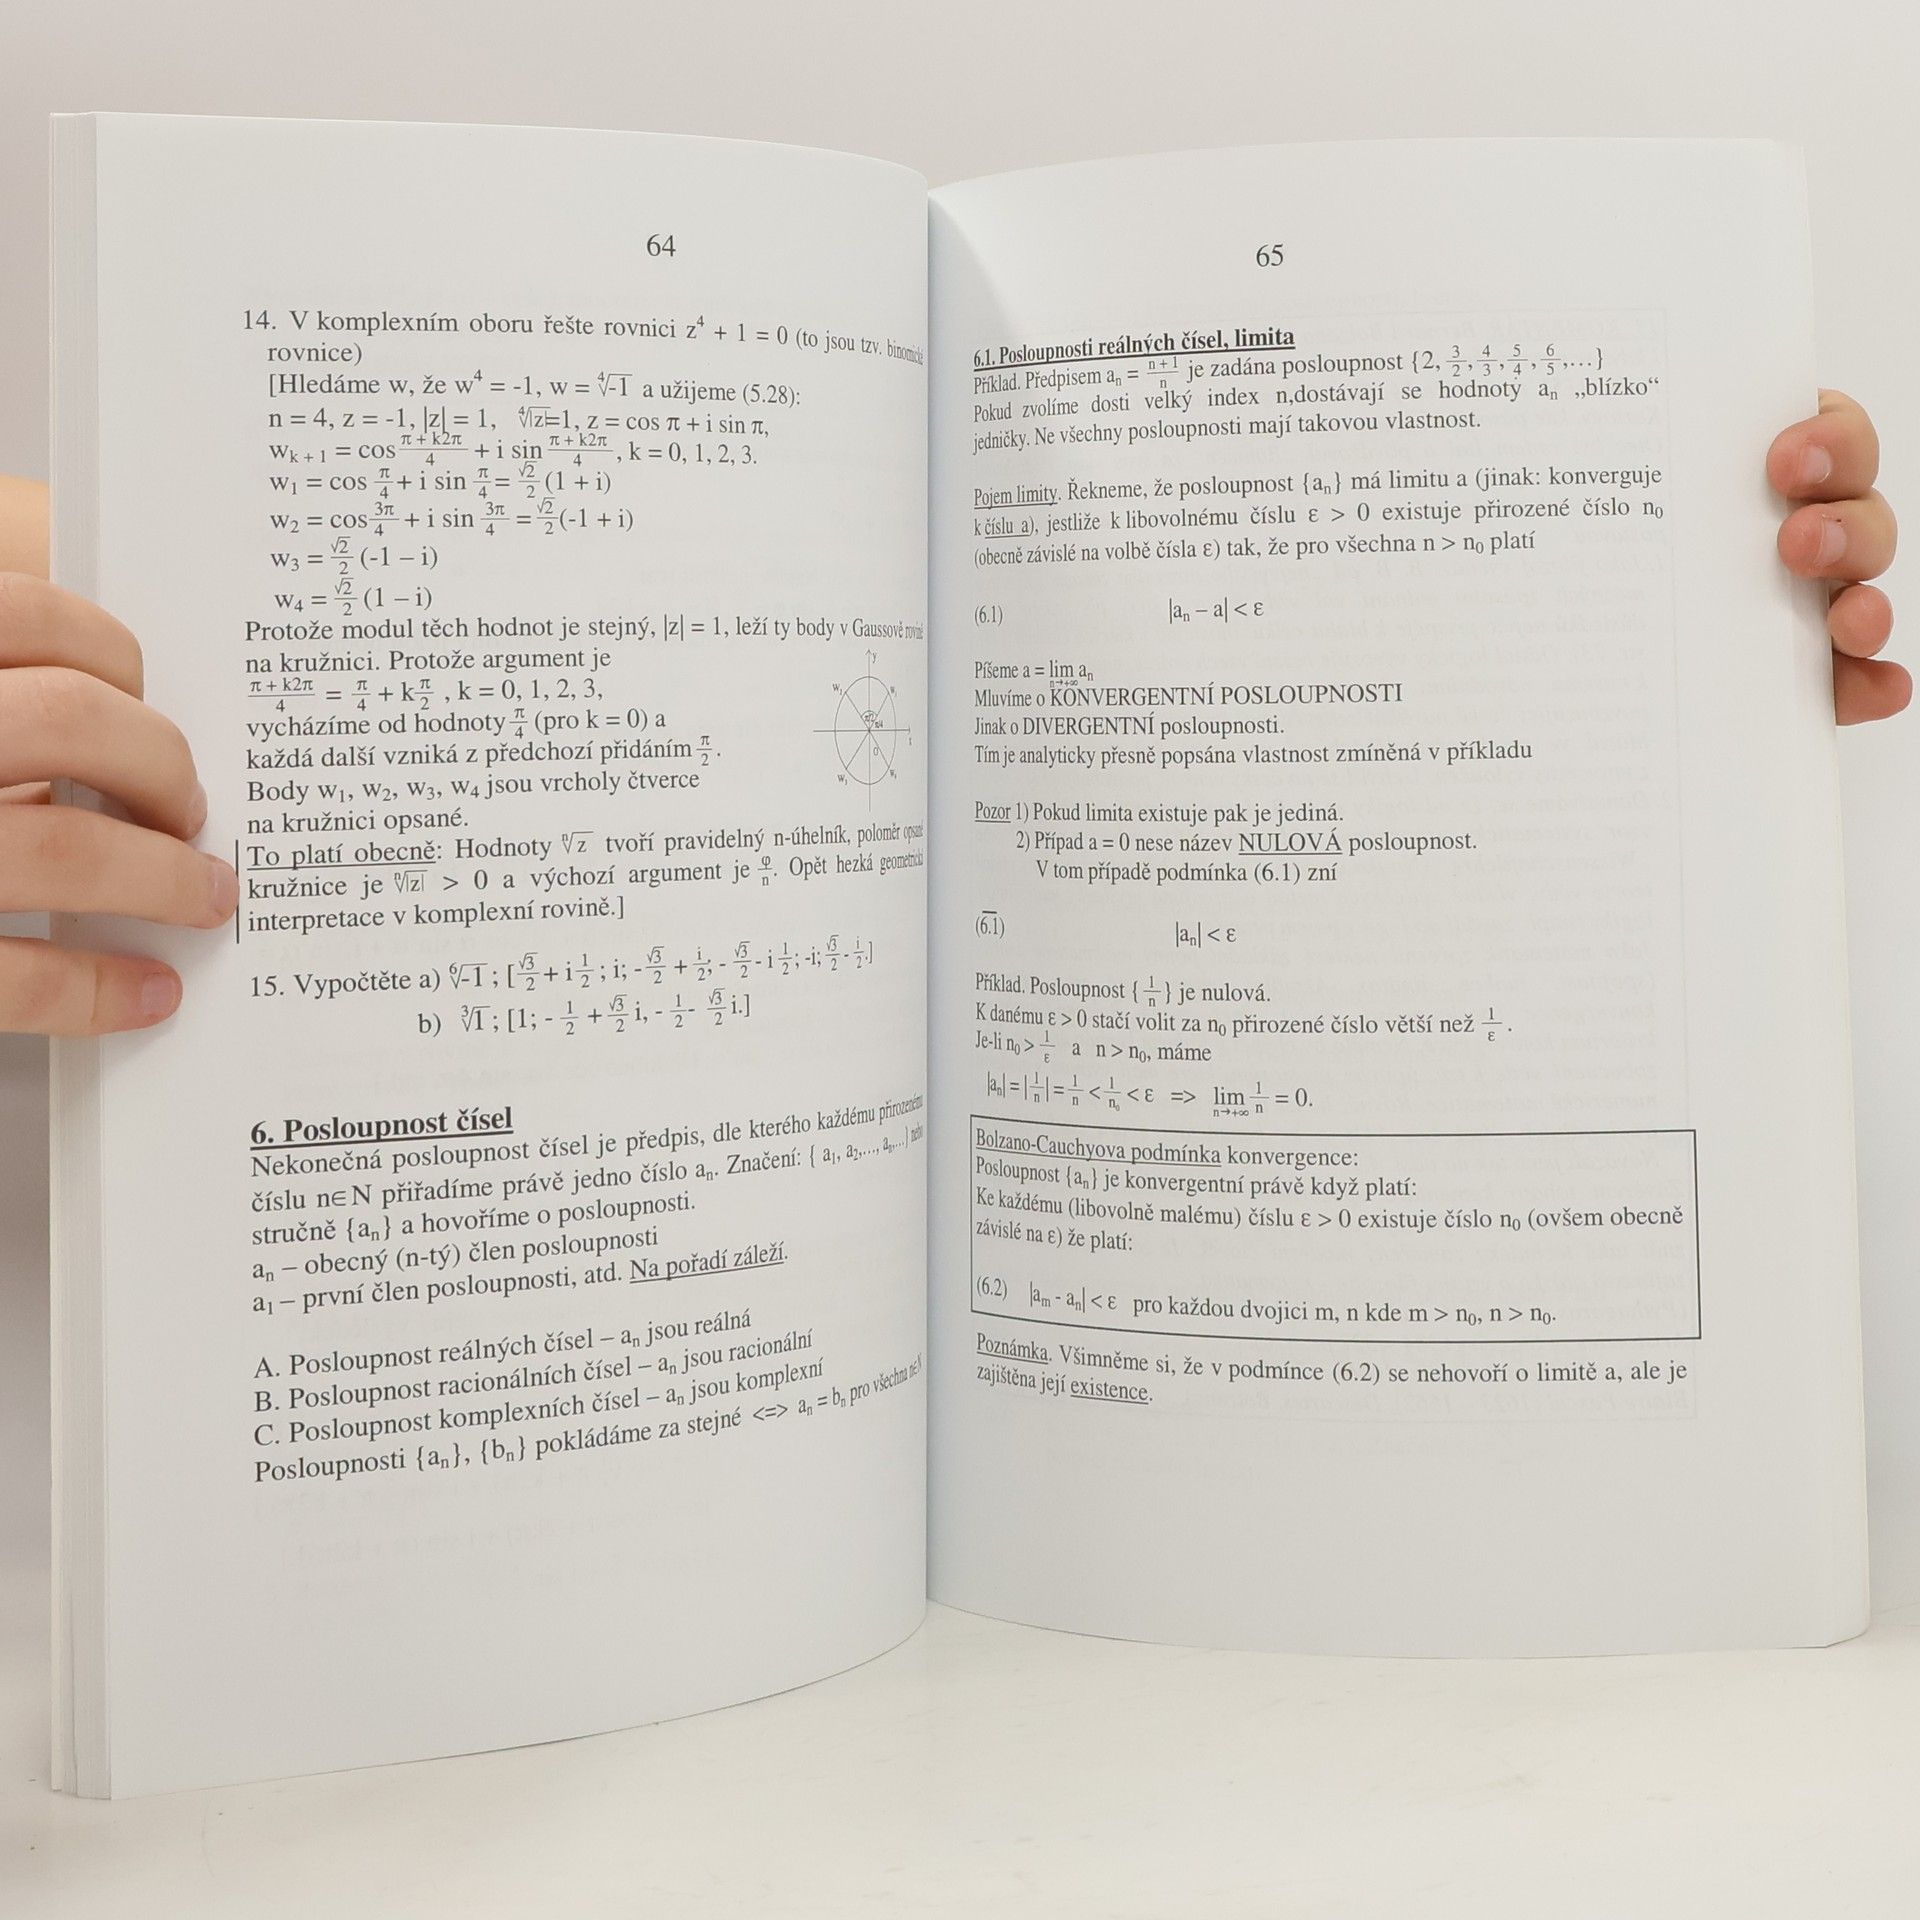 64
14. V komplexním oboru řešte rovnici z⁴ + 1 = 0 (to jsou tzv. binomické
rovnice)
[Hledáme w, že w⁴ = -1, w = ⁴√-1 a užijeme (5.28):
n = 4, z = -1, |z| = 1, ⁴√|z|=1, z = cos π + i sin π,
wₖ₊₁ = cos (π + k2π)/4 + i sin (π + k2π)/4, k = 0, 1, 2, 3.
w₁ = cos π/4 + i sin π/4 = √2/2 (1 + i)
w₂ = cos 3π/4 + i sin 3π/4 = √2/2 (-1 + i)
w₃ = √2/2 (-1 – i)
w₄ = √2/2 (1 – i)
Protože modul těch hodnot je stejný, |z| = 1, leží ty body v Gaussově rovině
na kružnici. Protože argument je
(π + k2π)/4 = π/4 + k π/2 , k = 0, 1, 2, 3,
vycházíme od hodnoty π/4 (pro k = 0) a
každá další vzniká z předchozí přidáním π/2.
Body w₁, w₂, w₃, w₄ jsou vrcholy čtverce
na kružnici opsané.
To platí obecně: Hodnoty ⁿ√z tvoří pravidelný n-úhelník, poloměr opsané
kružnice je ⁿ√|z| > 0 a výchozí argument je φ/n. Opět hezká geometrická
interpretace v komplexní rovině.]
15. Vypočtěte a) ⁶√-1 ; [√3/2 + i 1/2 ; i; - √3/2 + i/2; - √3/2 - i 1/2; -i; √3/2 - i/2.]
b) ³√1 ; [1; - 1/2 + √3/2 i, - 1/2 - √3/2 i.]
6. Posloupnost čísel
Nekonečná posloupnost čísel je předpis, dle kterého každému přirozenému
číslu n∈N přiřadíme právě jedno číslo aₙ. Značení: { a₁, a₂,..., aₙ,...} nebo
stručně {aₙ} a hovoříme o posloupnosti.
aₙ – obecný (n-tý) člen posloupnosti
a₁ – první člen posloupnosti, atd. Na pořadí záleží.
A. Posloupnost reálných čísel – aₙ jsou reálná
B. Posloupnost racionálních čísel – aₙ jsou racionální
C. Posloupnost komplexních čísel – aₙ jsou komplexní
Posloupnosti {aₙ}, {bₙ} pokládáme za stejné <=> aₙ = bₙ pro všechna n∈N
65
6.1. Posloupnosti reálných čísel, limita
Příklad. Předpisem aₙ = (n + 1)/n je zadána posloupnost {2, 3/2, 4/3, 5/4, 6/5,...}
Pokud zvolíme dosti velký index n,dostávají se hodnoty aₙ „blízko“
jedničky. Ne všechny posloupnosti mají takovou vlastnost.
Pojem limity. Řekneme, že posloupnost {aₙ} má limitu a (jinak: konverguje
k číslu a), jestliže k libovolnému číslu ε > 0 existuje přirozené číslo n₀
(obecně závislé na volbě čísla ε) tak, že pro všechna n > n₀ platí
(6.1) |aₙ – a| < ε
Píšeme a = lim aₙ
n→+∞
Mluvíme o KONVERGENTNÍ POSLOUPNOSTI
Jinak o DIVERGENTNÍ posloupnosti.
Tím je analyticky přesně popsána vlastnost zmíněná v příkladu
Pozor 1) Pokud limita existuje pak je jediná.
2) Případ a = 0 nese název NULOVÁ posloupnost.
V tom případě podmínka (6.1) zní
(6̅.̅1̅) |aₙ| < ε
Příklad. Posloupnost { 1/n } je nulová.
K danému ε > 0 stačí volit za n₀ přirozené číslo větší než 1/ε .
Je-li n₀ > 1/ε a n > n₀, máme
|aₙ| = |1/n| = 1/n < 1/n₀ < ε => lim 1/n = 0.
n→+∞
Bolzano-Cauchyova podmínka konvergence:
Posloupnost {aₙ} je konvergentní právě když platí:
Ke každému (libovolně malému) číslu ε > 0 existuje číslo n₀ (ovšem obecně
závislé na ε) že platí:
(6.2) |aₘ - aₙ| < ε pro každou dvojici m, n kde m > n₀, n > n₀.
Poznámka. Všimněme si, že v podmínce (6.2) se nehovoří o limitě a, ale je
zajištěna její existence.